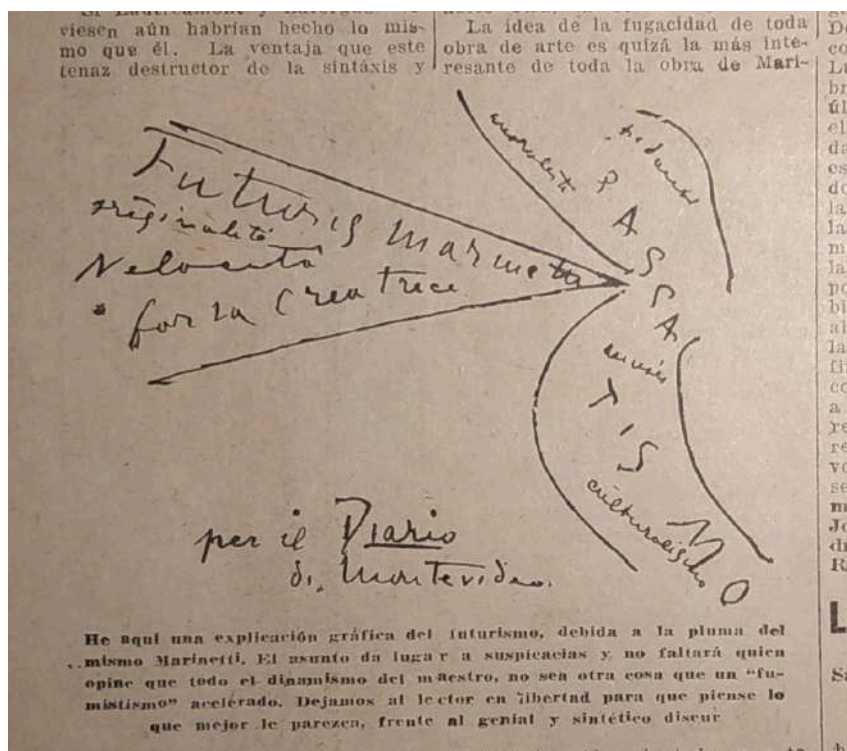 viesen aún habrían hecho lo mis-
mo que él. La ventaja que este
tenaz destructor de la sintáxis y
La idea de la fugacidad de toda
obra de arte es quizá la más inte-
resante de toda la obra de Mari-
Futuris marinetti
originalità
Velocità
forza creatrice
pedanti
PASSATISMO
culturalismo
per il Diario
di Montevideo.
He aquí una explicación gráfica del futurismo, debida a la pluma del
mismo Marinetti. El asunto da lugar a suspicacias y no faltará quien
opine que todo el dinamismo del maestro, no sea otra cosa que un "fu-
mistismo" acelerado. Dejamos al lector en libertad para que piense lo
que mejor le parezca, frente al genial y sintético diseur